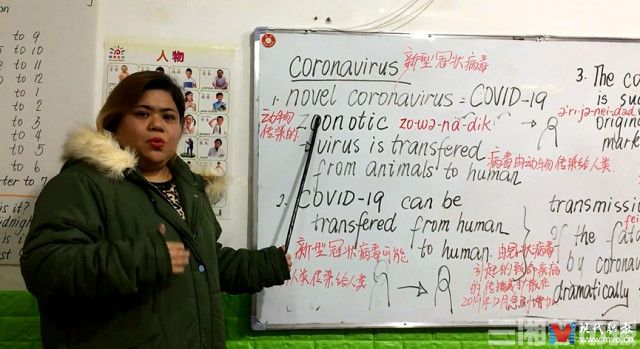 to 9
to 10
to 11
to 12
to 1
to 2
to 3
to 4
to 5
to 6
to 7
is it?
人物
coronavirus
新型冠状病毒
1. novel coronavirus = COVID-19
zoonotic
zo-wə-nä-dik
动物
传染的
virus is transfered
from animals to human
病毒由动物传染给人类.
2. COVID-19 can be
transfered from human
to human.
新型冠状病毒可能
人类传染给人类
由冠状病毒
引起的致命疾病
的传播
2019年12月急剧增加
3. The co
is su
ə'ri-jə-nei-dəd
origin
mark
transmiss
of the fat
by corona
dramatically
三湘
现代职教
www.mve.cn